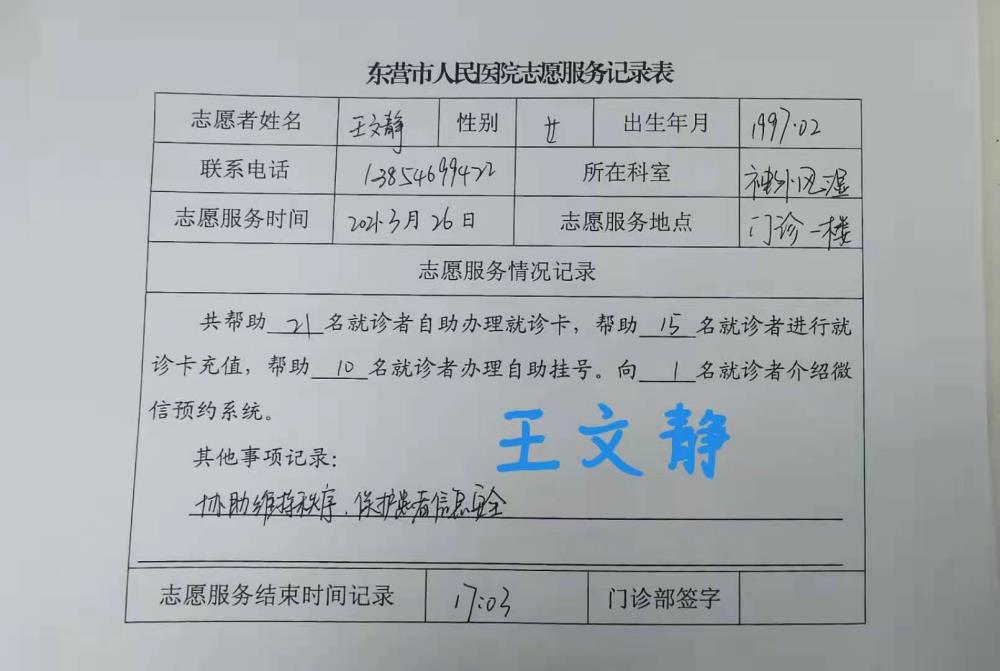 东营市人民医院志愿服务记录表
志愿者姓名 王文静 性别 女 出生年月 1997.02
联系电话 13854699422 所在科室 神外风湿
志愿服务时间 2021.3月26日 志愿服务地点 门诊一楼
志愿服务情况记录
共帮助 21 名就诊者自助办理就诊卡，帮助 15 名就诊者进行就
诊卡充值，帮助 10 名就诊者办理自助挂号。向 1 名就诊者介绍微
信预约系统。
王文静
其他事项记录：
协助维持秩序、保护患者信息安全
志愿服务结束时间记录 17:03 门诊部签字